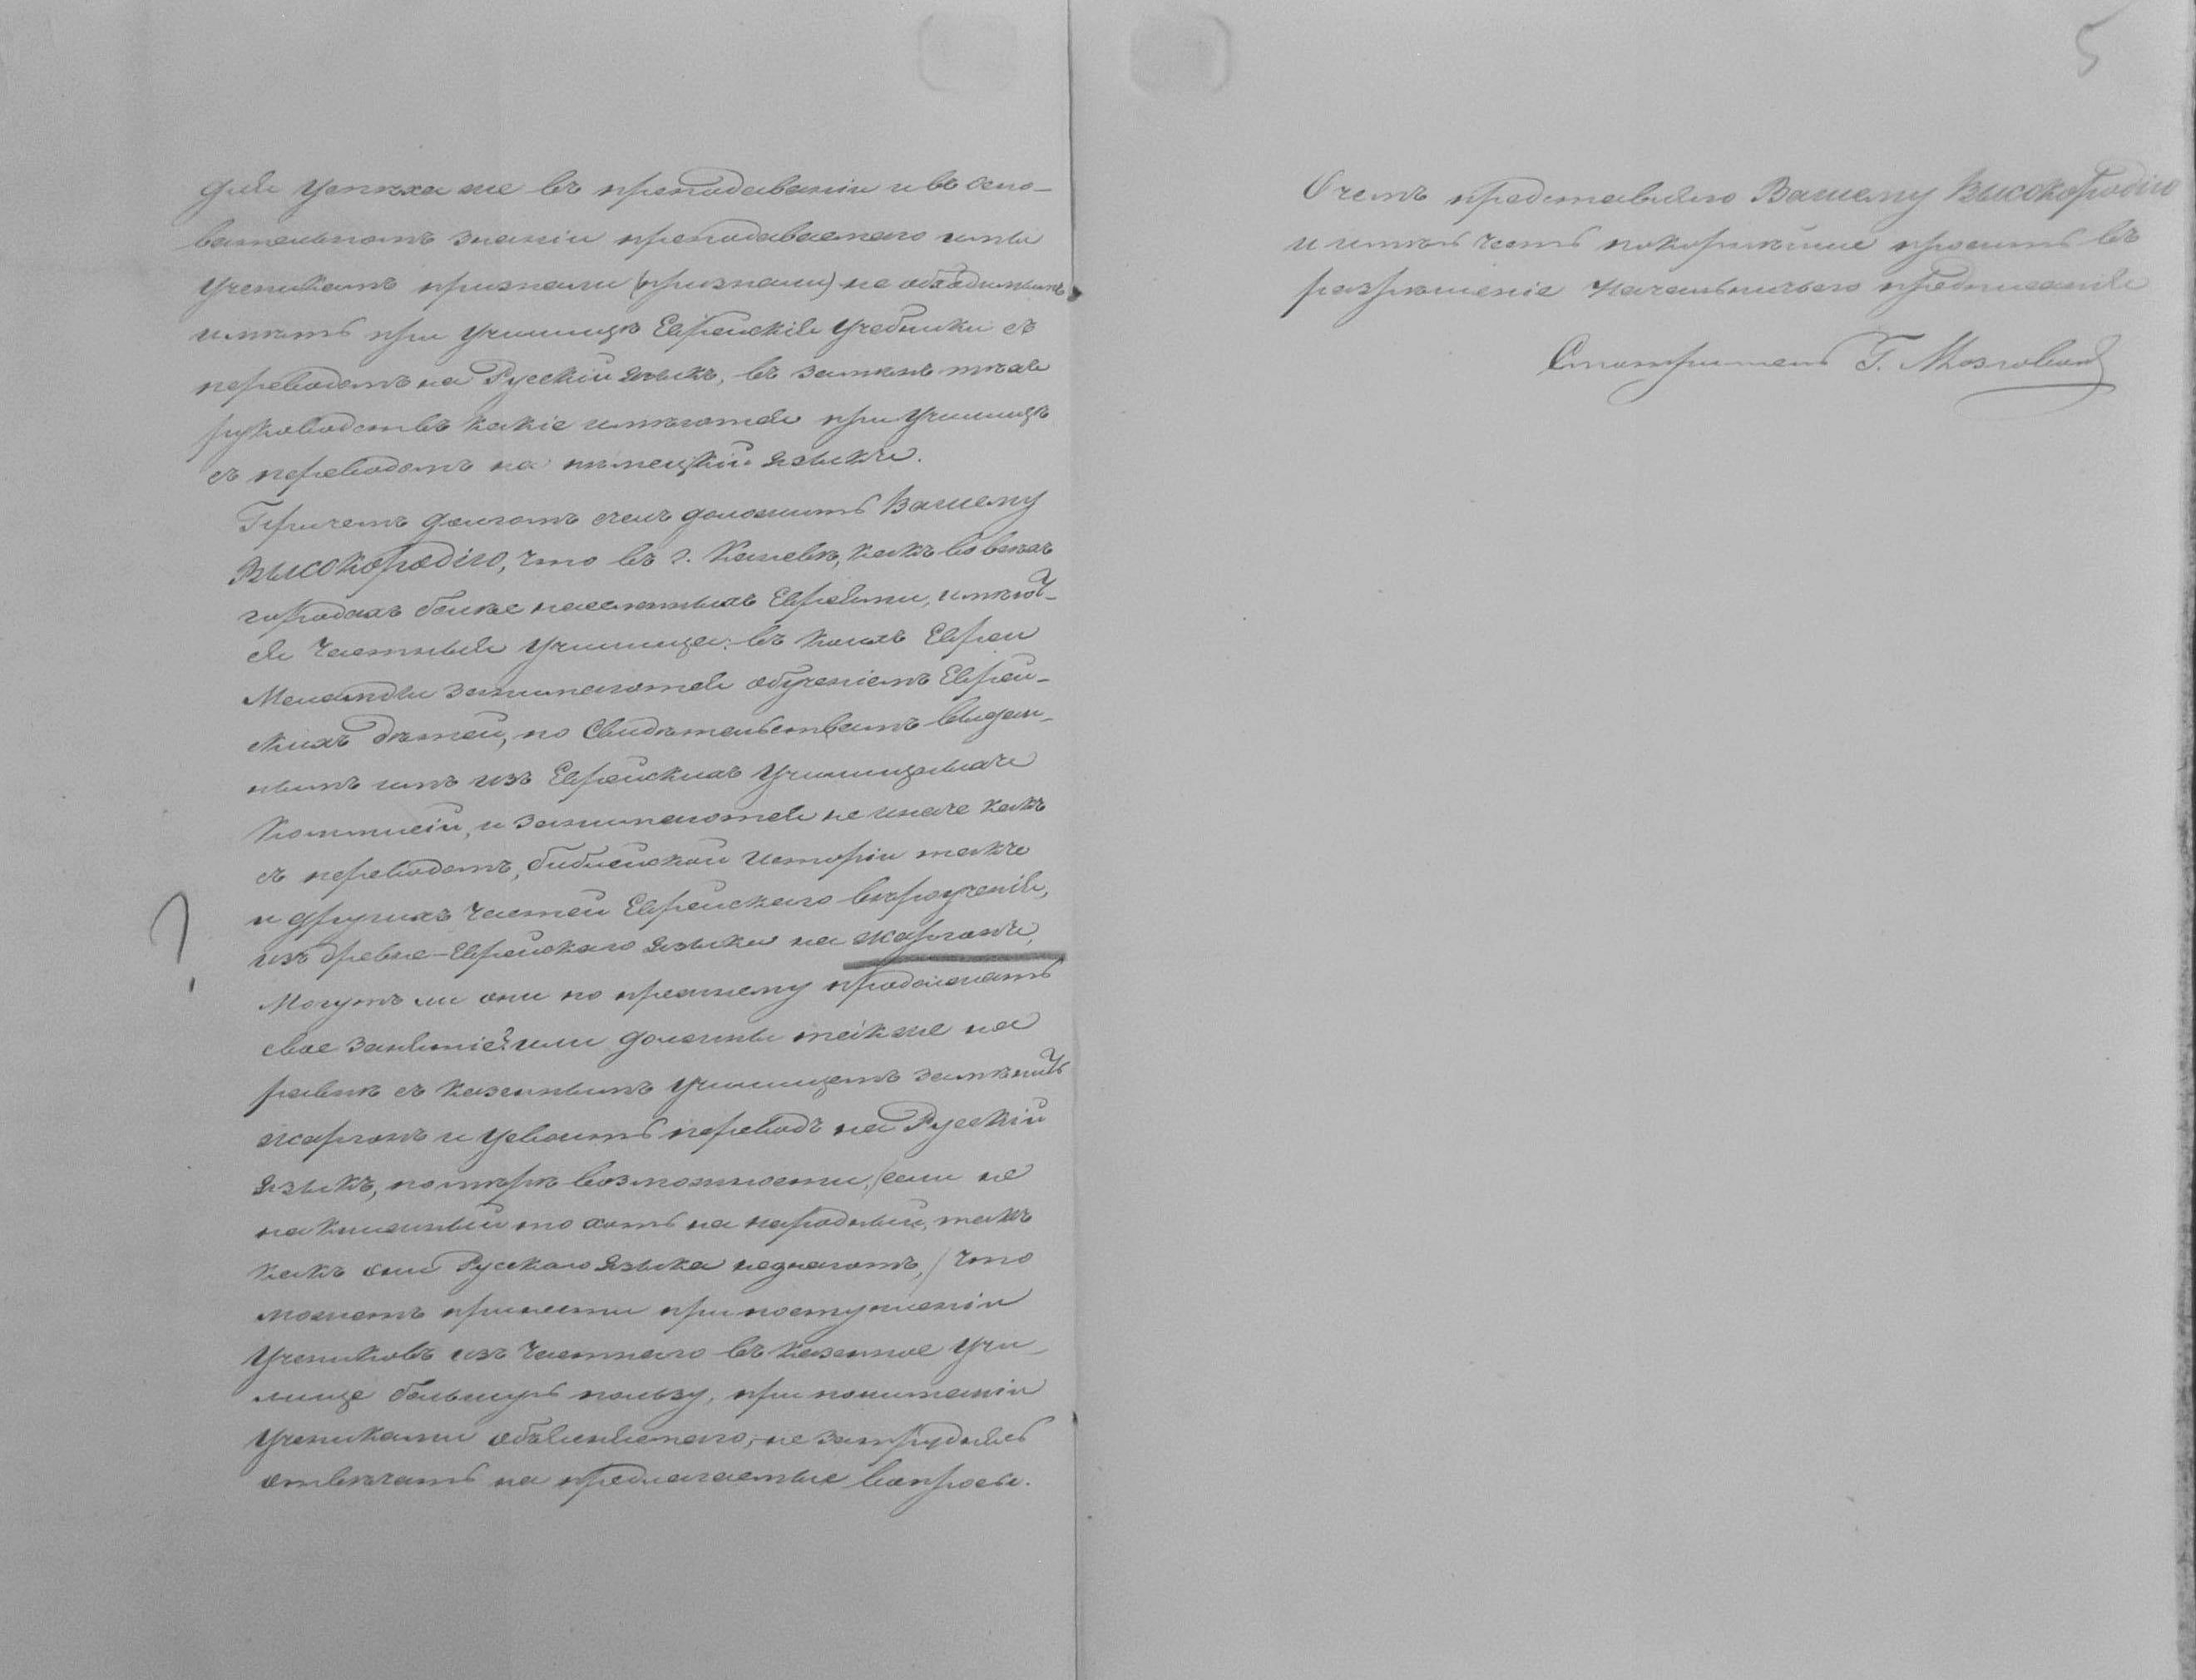 для успѣха же въ преподаваніи и въ осно-
вательномъ знаніи преподаваемаго ими
ученикамъ признали (признали) не обходимымъ
имѣть при училищѣ Еврейскія учебники съ
переводомъ на Русскій языкъ, въ замѣнъ тѣхъ
руководствъ какіе имѣются при училищѣ
съ переводомъ на нѣмецкій языкъ.
Причемъ долгомъ счелъ доложить Вашему
Высокородію, что въ г. Каневѣ, какъ во всѣхъ
городахъ болѣе населенныхъ Евреями, имѣют-
ся частныя училища: въ коихъ Евреи
Меламды занимаются обученіемъ Еврей-
скихъ дѣтей, по свидѣтельствамъ выдан-
нымъ имъ изъ Еврейскихъ училищныхъ
Коммисій, и занимаются не иначе какъ
съ переводомъ, библейской исторіи такъ
и другихъ частей Еврейскаго вѣроученія,
изъ древне-Еврейскаго языка на жаргонъ,
?
Могутъ ли они по прежнему продолжать
свое занятіе? или должны также на
равнѣ съ казеннымъ училищемъ замѣнить
жаргонъ и усвоить переводъ на Русскій
языкъ, по мѣрѣ возможности, (если не
на книжный то хоть на народный, такъ
какъ они Русскаго языка незнаютъ,) что
можетъ принести при поступленіи
учениковъ изъ частнаго въ казенное учи-
лище большую пользу, при пониманіи
учениками объясняемаго, не затрудняясь
отвѣчать на предлагаемые вопросы.
5
О чемъ представляю Вашему Высокородію
и имѣю честь покорнѣйше просить въ
разрѣшеніе начальничьяго предписанія
Смотритель Г.